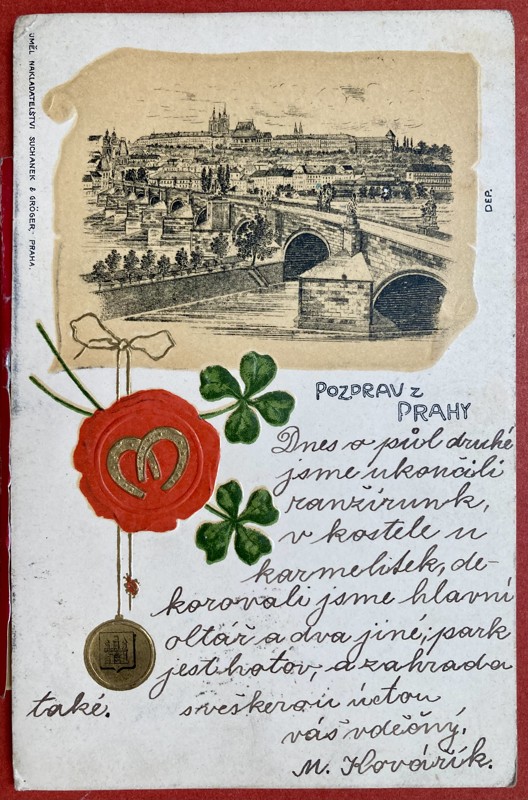 UMĚL. NAKLADATELSTVÍ SUCHANEK & GRÖGER, PRAHA.
DEP.
POZDRAV z
PRAHY
Dnes o půl druhé
jsme ukončili
ranžírunk,
v kostele u
karmelitek, de-
korovali jsme hlavní
oltář a dva jiné, park
jest hotov, a zahrada
také. s veškerou úctou
váš vděčný.
M. Kovářík.